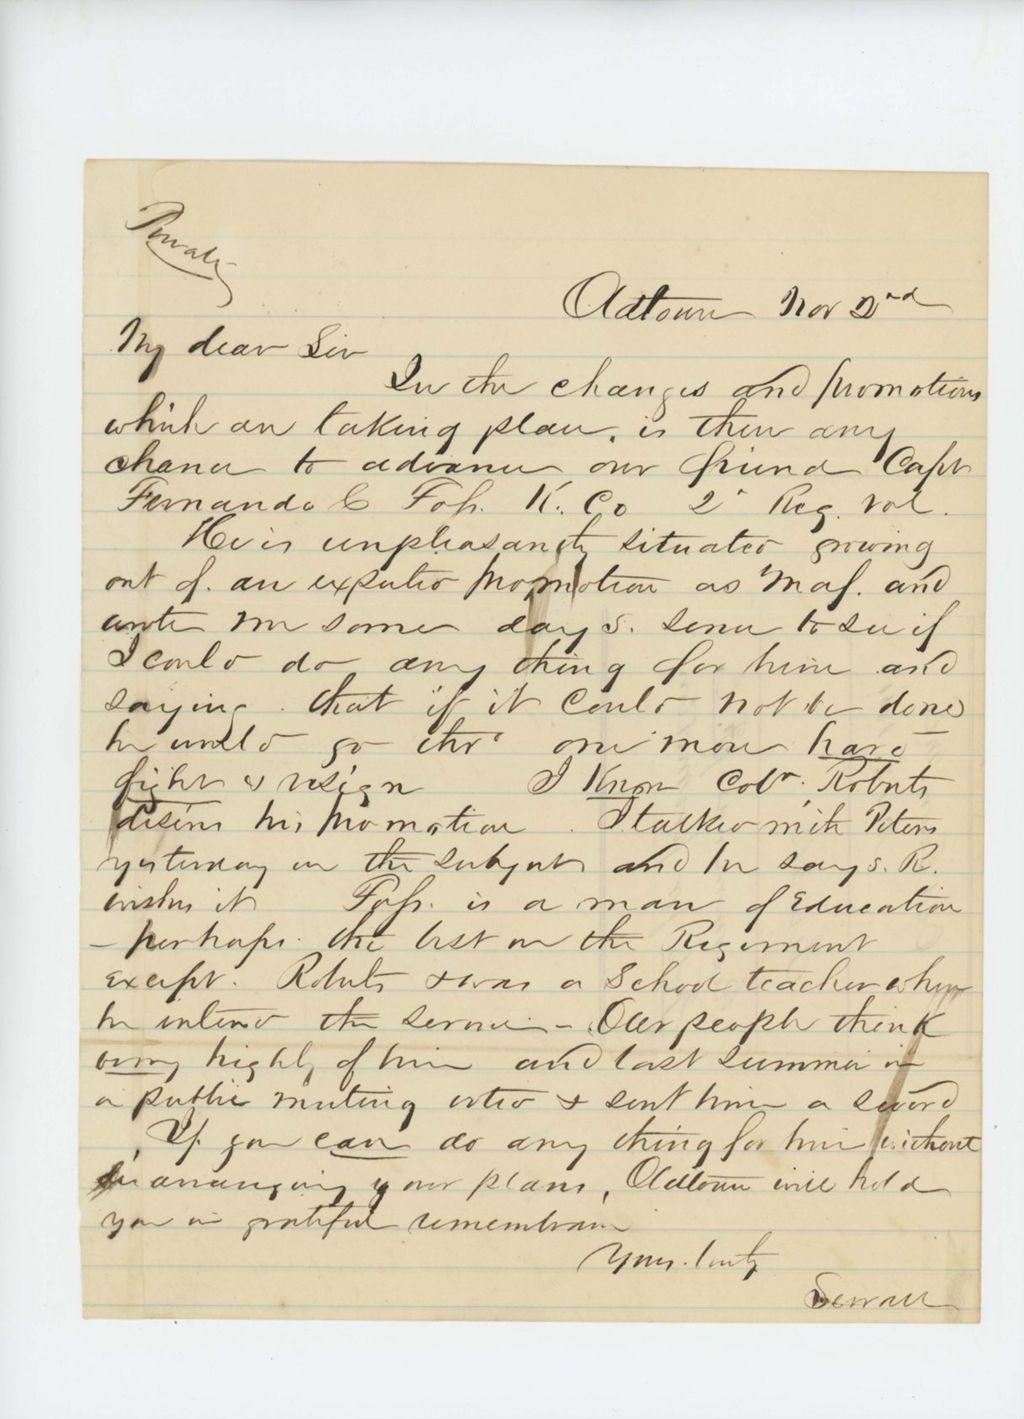 Private
Oldtown Nov 2nd
My dear Sir
In the changes and promotions
which are taking place, is there any
chance to advance our friend Capt
Fernando C Foss. K. Co 2d Reg. Vol.
He is unpleasantly situated growing
out of. an expected promotion as Maj. and
wrote me some days. since to see if
I could do any thing for him and
saying. that if it could not be done
he would go thro' one more hard
fight & resign I Know Col. Roberts
desires his promotion. I talked with Peters
yesterday on the subject and he says. R.
wishes it Foss. is a man of Education
- perhaps. the best in the Regiment
except. Roberts & was a School teacher when
he entered the service - Our people think
very highly of him and last summer in
a public meeting voted & sent him a sword
If you can do any thing for him without
disarranging your plans, Oldtown will hold
you in grateful remembrance
Yours. truly
Sewall